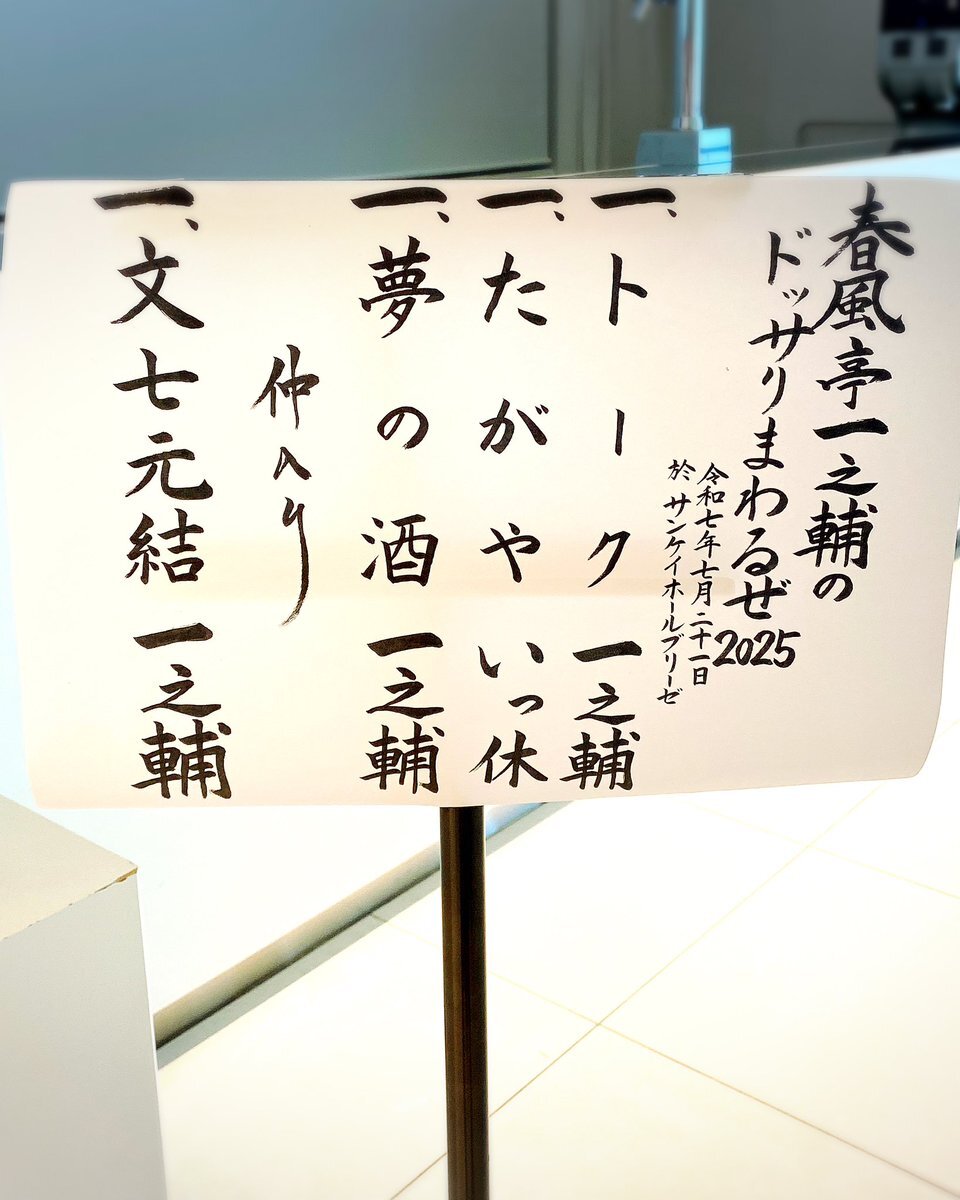 春風亭一之輔の
ドッサリまわるぜ2025
令和七年七月二十一日
於 サンケイホールブリーゼ
一、トーク 一之輔
一、たがや いっ休
一、夢の酒 一之輔
仲入り
一、文七元結 一之輔